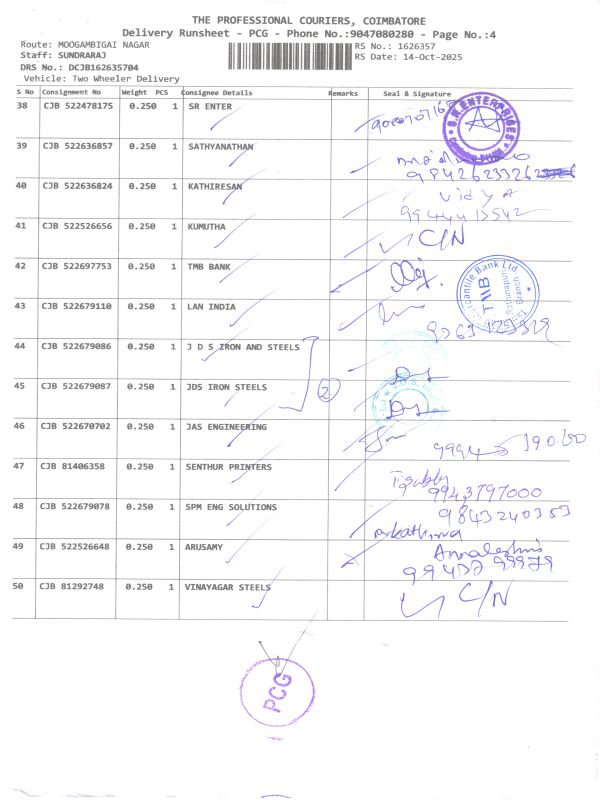 THE PROFESSIONAL COURIERS, COIMBATORE
Delivery Runsheet - PCG - Phone No.:9047080280 - Page No.:4
Route: MOOGAMBIGAI NAGAR
RS No.: 1626357
Staff: SUNDRARAJ
RS Date: 14-Oct-2025
DRS No.: DCJB162635704
Vehicle: Two Wheeler Delivery
S No Consignment No Weight PCS Consignee Details Remarks Seal & Signature
38 CJB 522478175 0.250 1 SR ENTER
39 CJB 522636857 0.250 1 SATHYANATHAN
40 CJB 522636824 0.250 1 KATHIRESAN vidya
41 CJB 522526656 0.250 1 KUMUTHA C/N
42 CJB 522697753 0.250 1 TMB BANK TMB
43 CJB 522679110 0.250 1 LAN INDIA
44 CJB 522679086 0.250 1 J D S IRON AND STEELS
2
45 CJB 522679087 0.250 1 JDS IRON STEELS
46 CJB 522670702 0.250 1 JAS ENGINEERING
47 CJB 81406358 0.250 1 SENTHUR PRINTERS
9943797000
48 CJB 522679078 0.250 1 SPM ENG SOLUTIONS 9843240353
49 CJB 522526648 0.250 1 ARUSAMY
50 CJB 81292748 0.250 1 VINAYAGAR STEELS C/N
PCG